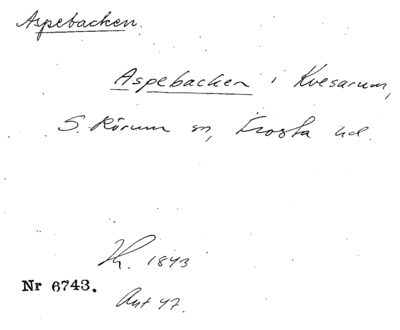 Aspebacken.
Aspebacken i Kvesarum,
S. Rörum sn, Frosta hd.
1843
Nr 6743.
Akt 47.